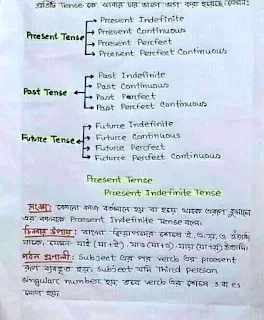 প্রতিটি Tense কে আবার চার ভাগে ভাগ করা হয়েছে। যেমন:
Present Indefinite
Present Continuous
Present Tense
Present Perfect
Present Perfect Continuous
Past Indefinite
Past Continuous
Past Tense
Past Perfect
Past Perfect Continuous
Future Indefinite
Future Continuous
Future Tense
Future Perfect
Future Perfect Continuous
Present Tense
Present Indefinite Tense
সংজ্ঞা: কোনো কাজ বর্তমানে হয় বা হয়ে থাকে এরূপ বুঝালে
এর কালকে Present Indefinite Tense বলে।
চিনবার উপায়: বাংলা ক্রিয়াপদের শেষে ই, এ, য়, ও ইত্যাদি
থাকে, যেমন- যাই (যা+ই), যাও (যা+ও), যায় (যা+য়) ইত্যাদি।
গঠন প্রণালী: Subject এর পর verb এর present
রূপ ব্যবহৃত হয়। subject যদি Third person
singular number হয় তবে verb এর শেষে s বা es
যোগ হয়।